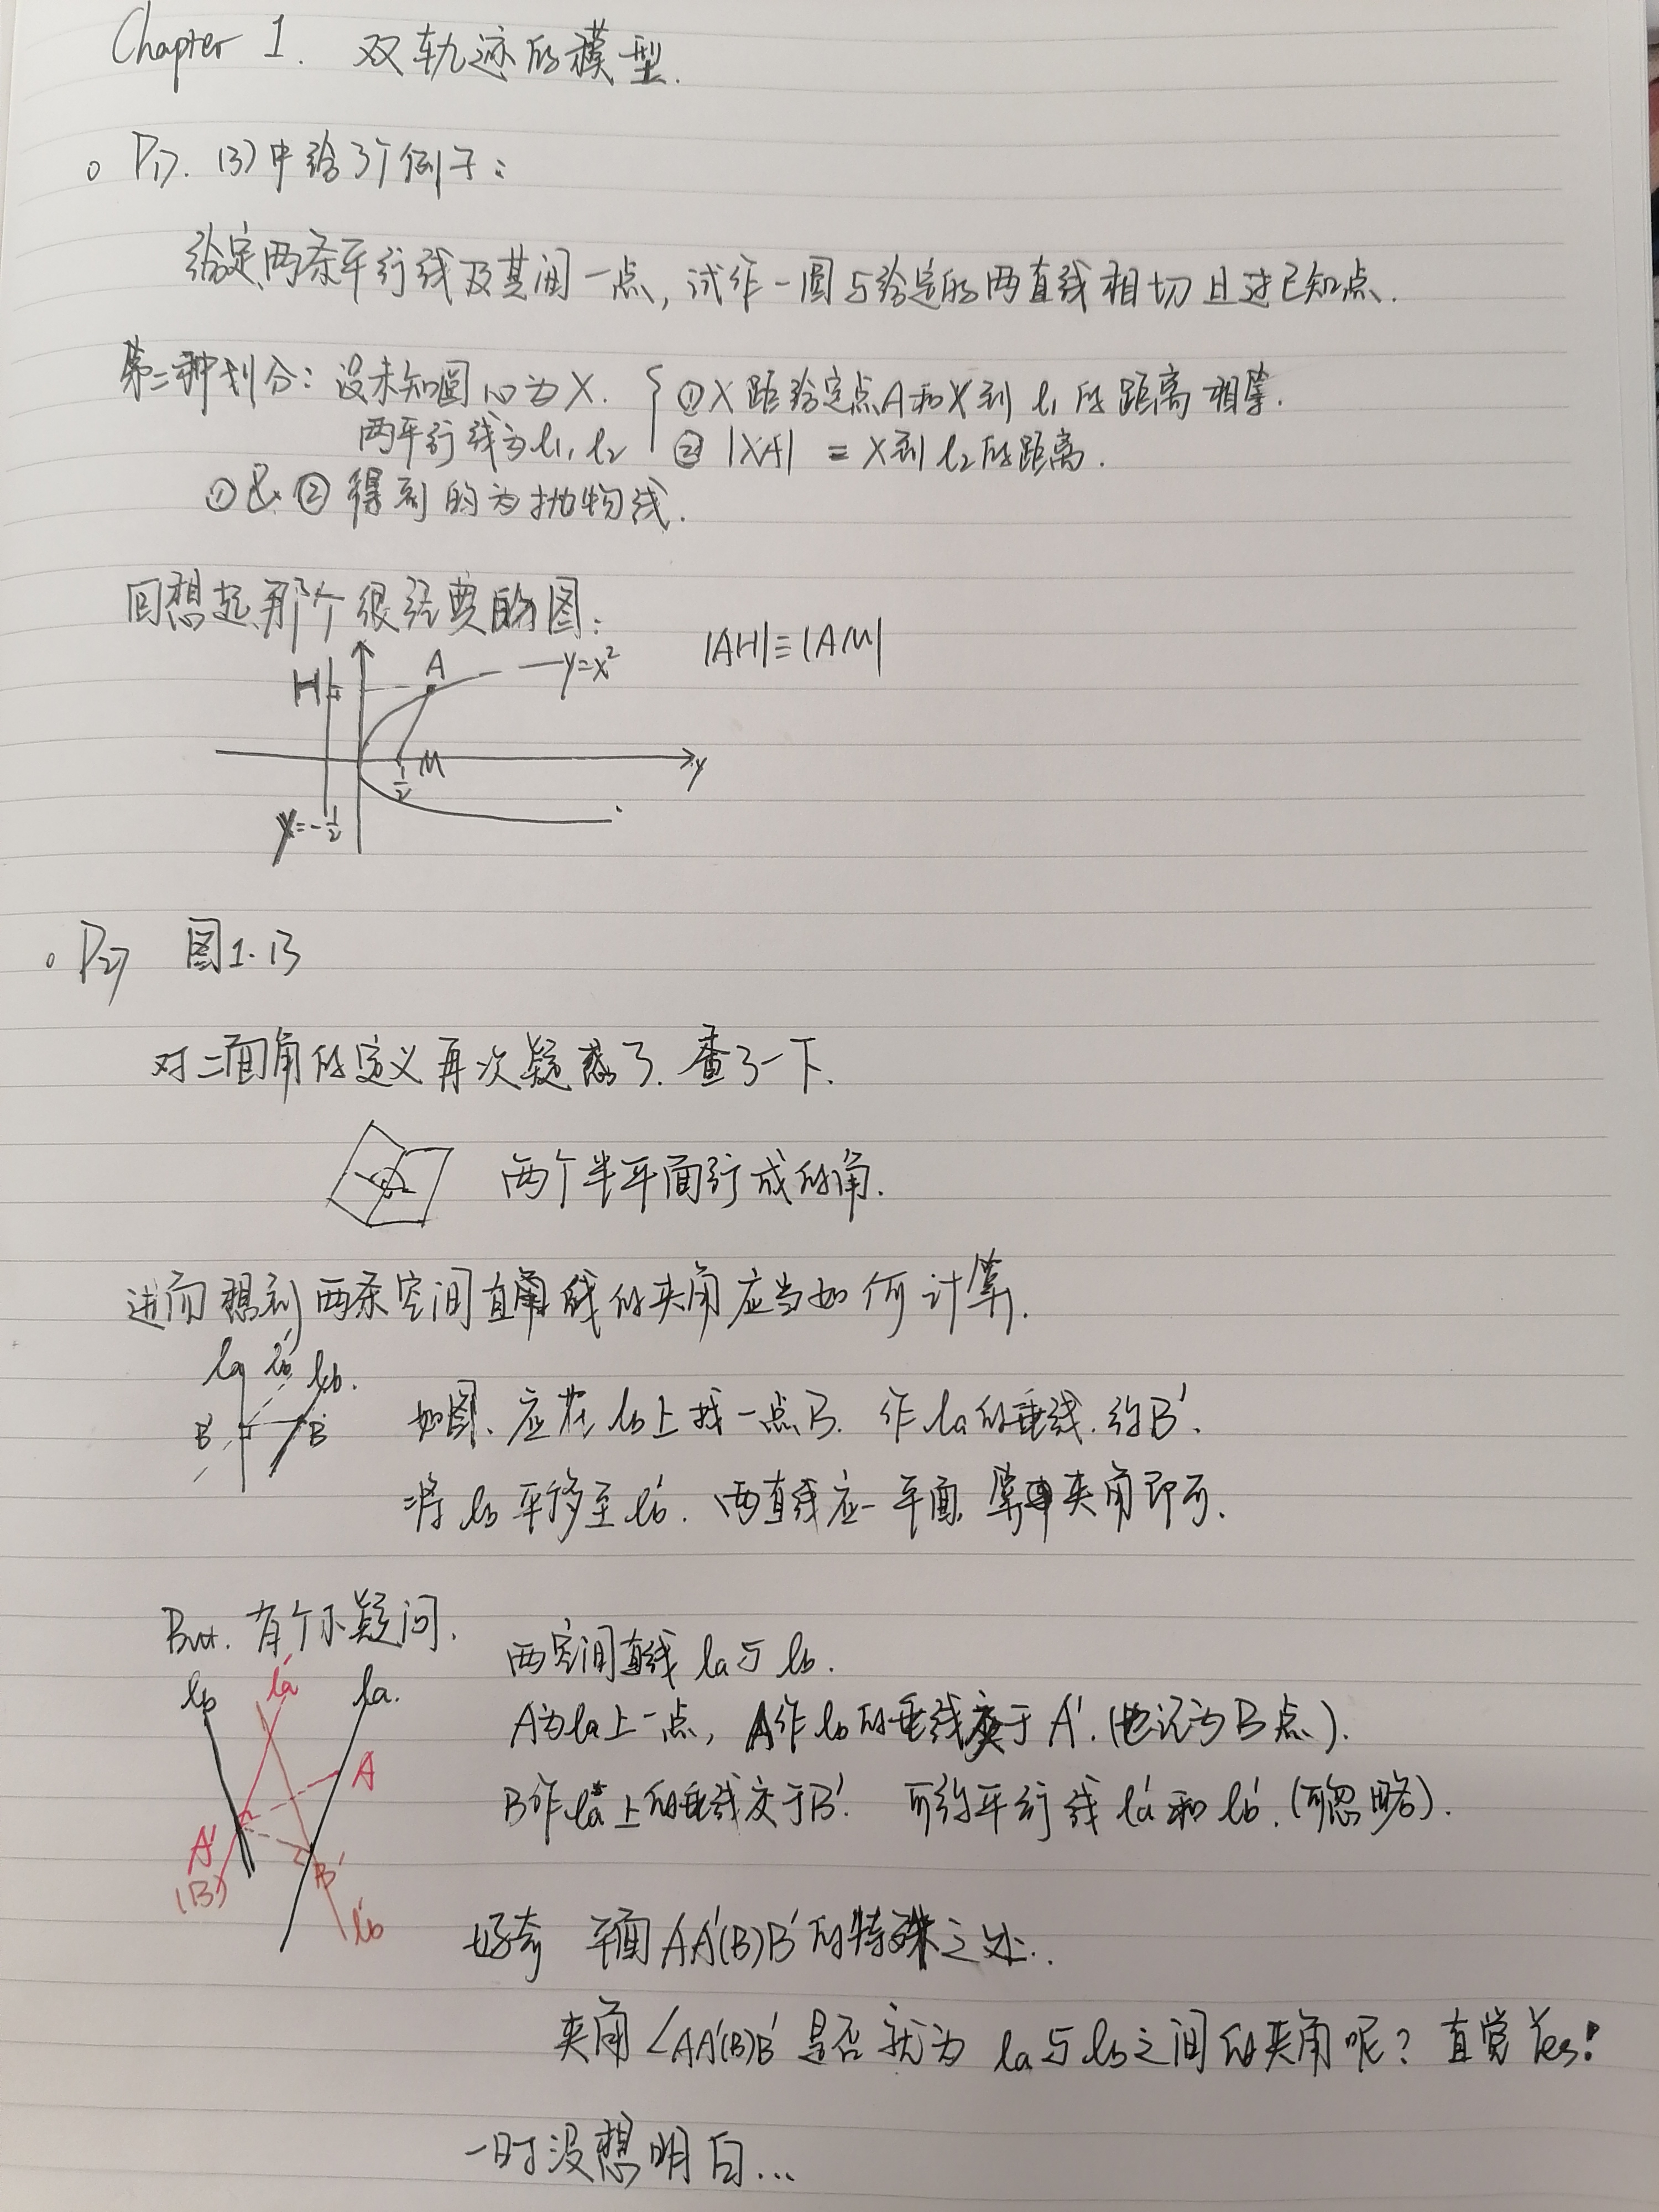 Chapter 1. 双轨迹的模型.
。P17. (3)中给了个例子:
给定两条平行线及其间一点, 试作一圆与给定的两直线相切且过已知点.
第二种划分: 设未知圆心为X. ①X距给定点A和X到l1的距离相等.
两平行线为l1, l2 ② |XA| = X到l2的距离.
①&②得到的为抛物线.
回想起那个很经典的图:
|AH|≡|AM|
H A y=x²
M y
1/2
y=-1/2
。P27 图1.13
对二面角的定义再次疑惑了. 查了一下.
两个半平面形成的角.
进而想到两条空间直线的夹角应当如何计算.
la lb' lb.
B' B 如图、应在lb上找一点B. 作la的垂线. 约B'.
将lb平移至lb'. 两直线应一平面. 算夹角即可.
But. 有个小疑问.
两空间直线 la与lb.
lb la' la.
A为la上一点, A作lb的垂线交于A'. (也记为B点).
A
B作la上的垂线交于B'. 可约平行线la'和lb'. (可忽略).
A'
(B) B'
lb'
好奇 平面AA'(B)B'的特殊之处.
夹角∠AA'(B)B'是否就为la与lb之间的夹角呢? 直觉Yes!
一时没想明白...